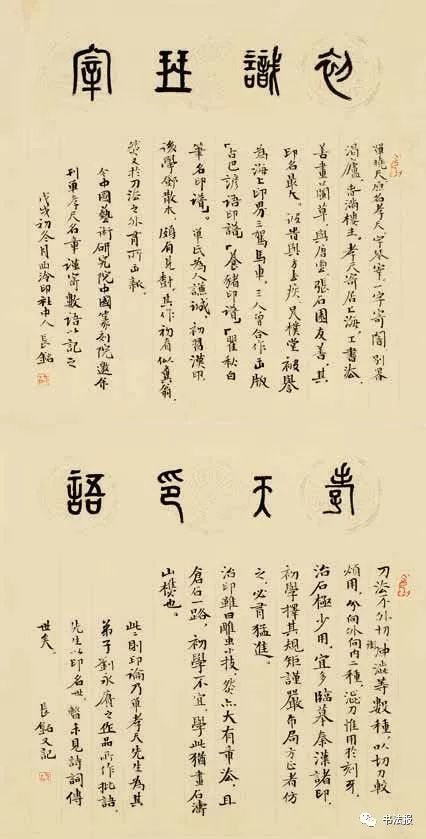 初識琴宰
單曉天原名孝天字琴宰一字寄闇別署
渴廬春滿樓主.孝天寄居上海.工書法.
善畫蘭草.與唐雲.張石園友善.其
印名最大.彼曾與方去疾.吴樸堂被譽
為海上印界三駕馬車.三人曾合作出版
「古巴諺語印譜」「養豬印譜」「瞿秋白
筆名印譜」.單氏為人謙誠.初習漢印.
後學鄧散木.頗有見對.其作初看似糞翁.
然又於刀法之外有所出新.
今中國藝術研究院中國篆刻院邀余
刊單孝天名章.謹寄數語以記之
戊戌初冬月西泠印社中人長銘
孝天印語
刀法不外切冲澁等數種.以切刀較
煩用.衝向外向内二種.澁刀惟用於刻牙.
治石極少用.宜多臨摹秦漢諸印.
初學擇其規矩謹嚴布局方正者仿
之.必有猛進.
治印雖曰雕虫小技.然亦大有重法.且
倉石一路.初學不宜.學此猶畫石濤
山樵也.
此二則印論乃單孝天先生為其
弟子劉永賡之作品所作批語.
先生以印名世.暫未見詩詞傳
世矣. 長銘又記
书法报